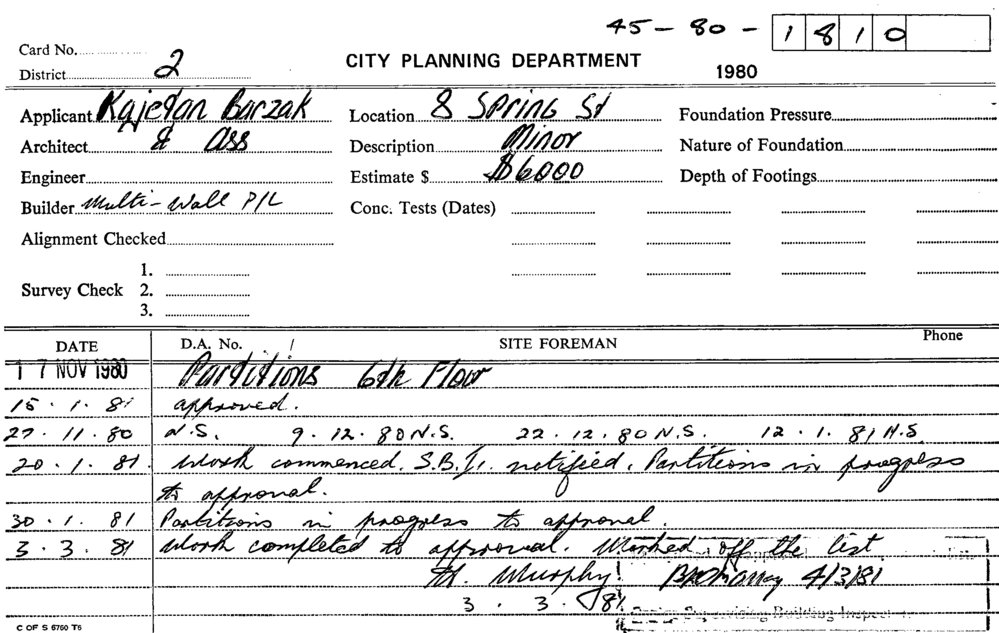 45 - 80 - 1810
Card No.
District 2
CITY PLANNING DEPARTMENT
1980
Applicant Kajetan Barzak
Location 8 Spring St
Foundation Pressure
Architect & Ass
Description Minor
Nature of Foundation
Engineer
Estimate $ $6000
Depth of Footings
Builder Multi-Wall P/L
Conc. Tests (Dates)
Alignment Checked
1.
Survey Check 2.
3.
DATE D.A. No. SITE FOREMAN Phone
17 NOV 1980 Partitions 6th Floor
15. 1. 81 approved.
27. 11. 80 N.S. 9. 12. 80 N.S. 22. 12. 80 N.S. 12. 1. 81 N.S.
20. 1. 81. Work commenced. S.B.I. notified. Partitions in progress
to approval.
30. 1. 81 Partitions in progress to approval.
3. 3. 81 Work completed to approval. Marked off the list
Murphy 4/3/81
3. 3. 81
Supervising Building Inspector
C OF S 6760 T6